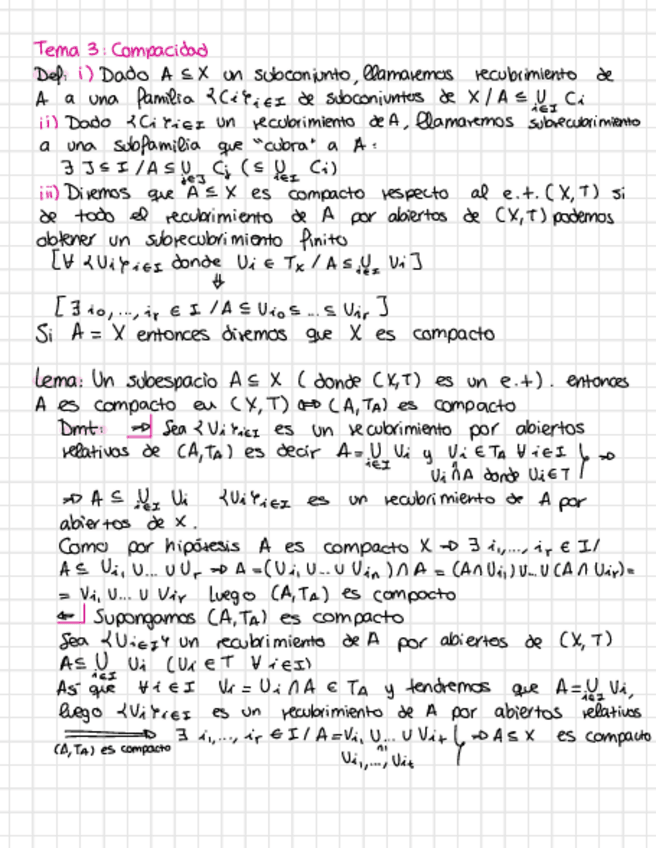 Tema 3: Compacidad
Def: i) Dado A ⊆ X un subconjunto, llamaremos recubrimiento de
A a una familia {Ci}i∈I de subconjuntos de X / A ⊆ ∪i∈I Ci
ii) Dado {Ci}i∈I un recubrimiento de A, llamaremos subrecubrimiento
a una subfamilia que "cubra" a A:
∃ J ⊆ I / A ⊆ ∪j∈J Cj (⊆ ∪i∈I Ci)
iii) Diremos que A ⊆ X es compacto respecto al e.t. (X,T) si
de todo el recubrimiento de A por abiertos de (X,T) podemos
obtener un subrecubrimiento finito
[∀ {Ui}i∈I donde Ui ∈ Tx / A ⊆ ∪i∈I Ui]
⇓
[∃ i0,..., ir ∈ I / A ⊆ Ui0 ⊆ ... ⊆ Uir]
Si A = X entonces diremos que X es compacto
Lema: Un subespacio A ⊆ X (donde (X,T) es un e.t). entonces
A es compacto en (X,T) ⇔ (A,TA) es compacto
Dmt: ⇒ Sea {Vi}i∈I es un recubrimiento por abiertos
relativos de (A,TA) es decir A = ∪i∈I Vi y Vi ∈ TA ∀i∈I } ⇒
Ui ∩ A donde Ui ∈ T
⇒ A ⊆ ∪i∈I Ui {Ui}i∈I es un recubrimiento de A por
abiertos de X.
Como por hipótesis A es compacto X ⇒ ∃ i1,..., ir ∈ I /
A ⊆ Ui1 ∪... ∪ Ur ⇒ A = (Ui1 ∪... ∪ Uin) ∩ A = (A∩Ui1) ∪... ∪ (A ∩ Uir) =
= Vi1 ∪... ∪ Vir luego (A,TA) es compacto
⇐ Supongamos (A,TA) es compacto
Sea {Ui∈I} un recubrimiento de A por abiertos de (X,T)
A ⊆ ∪i∈I Ui (Ui ∈ T ∀i∈I)
Así que ∀i∈I Vi = Ui ∩ A ∈ TA y tendremos que A = ∪i∈I Vi,
luego {Vi}i∈I es un recubrimiento de A por abiertos relativos
⟹ ∃ i1,..., ir ∈ I / A = Vi1 ∪... ∪ Vir } ⇒ A ⊆ X es compacto
(A,TA) es compacto
Ui1,..., Uit